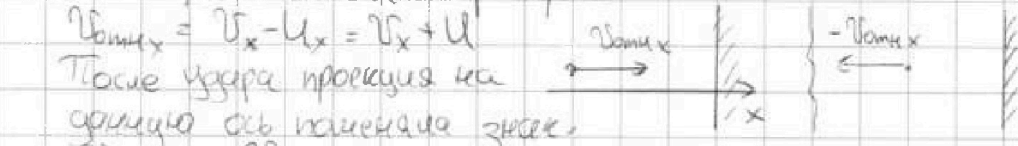 Vотн x = Vx - Ux = Vx + U
После удара проекция на
данную ось поменяла знак.
Vотн x
x
-Vотн x